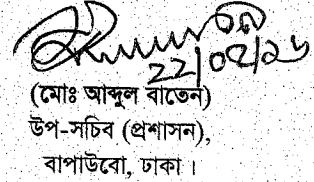 22/02/26
(মোঃ আব্দুল বাতেন)
উপ-সচিব (প্রশাসন),
বাপাউবো, ঢাকা।